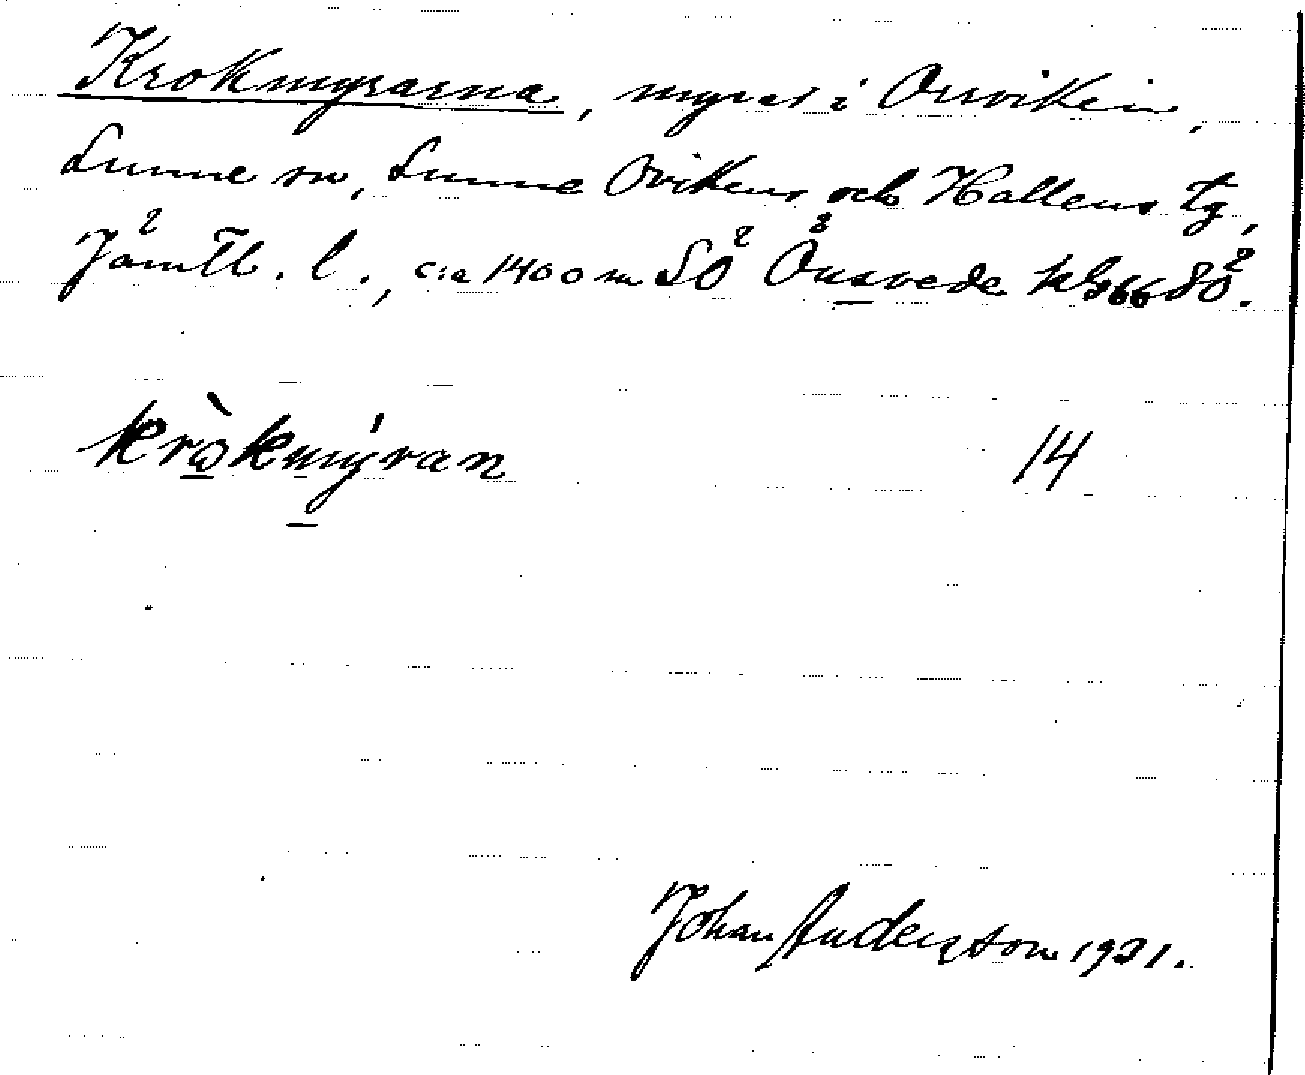 Krokmyrarna, myrar i Orrviken,
Sunne sn, Sunne Ovikens och Hallens tg,
Jämtl. l., c:a 1400 m SÖ Önsvede kb 66 SÖ.
kròkmýran 14
Johan Andersson 1931.